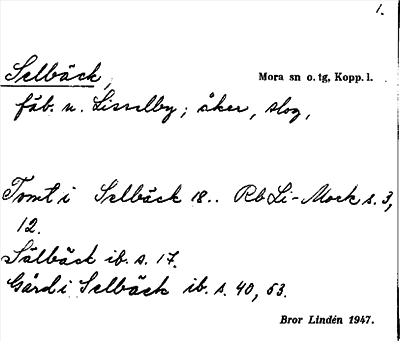 1.
Selbäck, Mora sn o. tg, Kopp. l.
fäb. u. Lisselby; åker, slog,
Tomt i Selbäck 18.. Rb Li-Mock s. 3,
12.
Sälbäck ib. s. 17.
Gård i Selbäck ib. s. 40, 53.
Bror Lindén 1947.